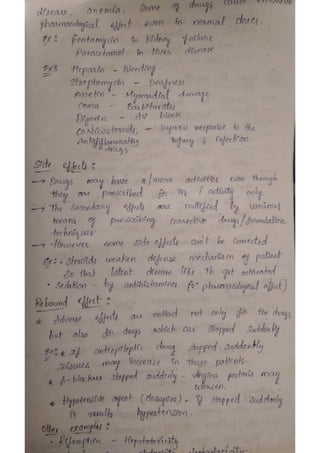 disease, anemia. Some of drugs cause excessive
pharmacological effect even in normal doses.
Ex: Gentamycin in Kidney failure
Paracetamol in liver disease
Ex: Heparin - Bleeding
Streptomycin - Deafness
Emetin - Myocardial damage
Coma - Barbiturates
Digoxin - AV block
Corticosteroids, - supress response to the
Antiinflammatory Injury & Infection
drugs
Side effects:
→ Drugs may have 2/more activities even though
they are prescribed for its 1 activity only.
→ The secondary effects are nullified by various
means of prescribing corrective drugs/formulation
techniques
→ However, some side effects can't be corrected
Ex: • Steroids weaken defense mechanism of patient
so that latent disease like Tb get activated
• Sedation - by antihistamines (2° pharmacological effect)
Rebound effect:
* Adverse effects are noticed not only for the drugs
but also for drugs which are stopped suddenly
Ex: * If antiepileptic drug stopped suddenly
seizures may increase in those patients.
* β-blockers stopped suddenly - Angina pectoris may
worsen.
* Hypotensive agent (clonapine) - If stopped suddenly
it results hypertension.
Other examples:
• Rifampicin - Hepatotoxicity